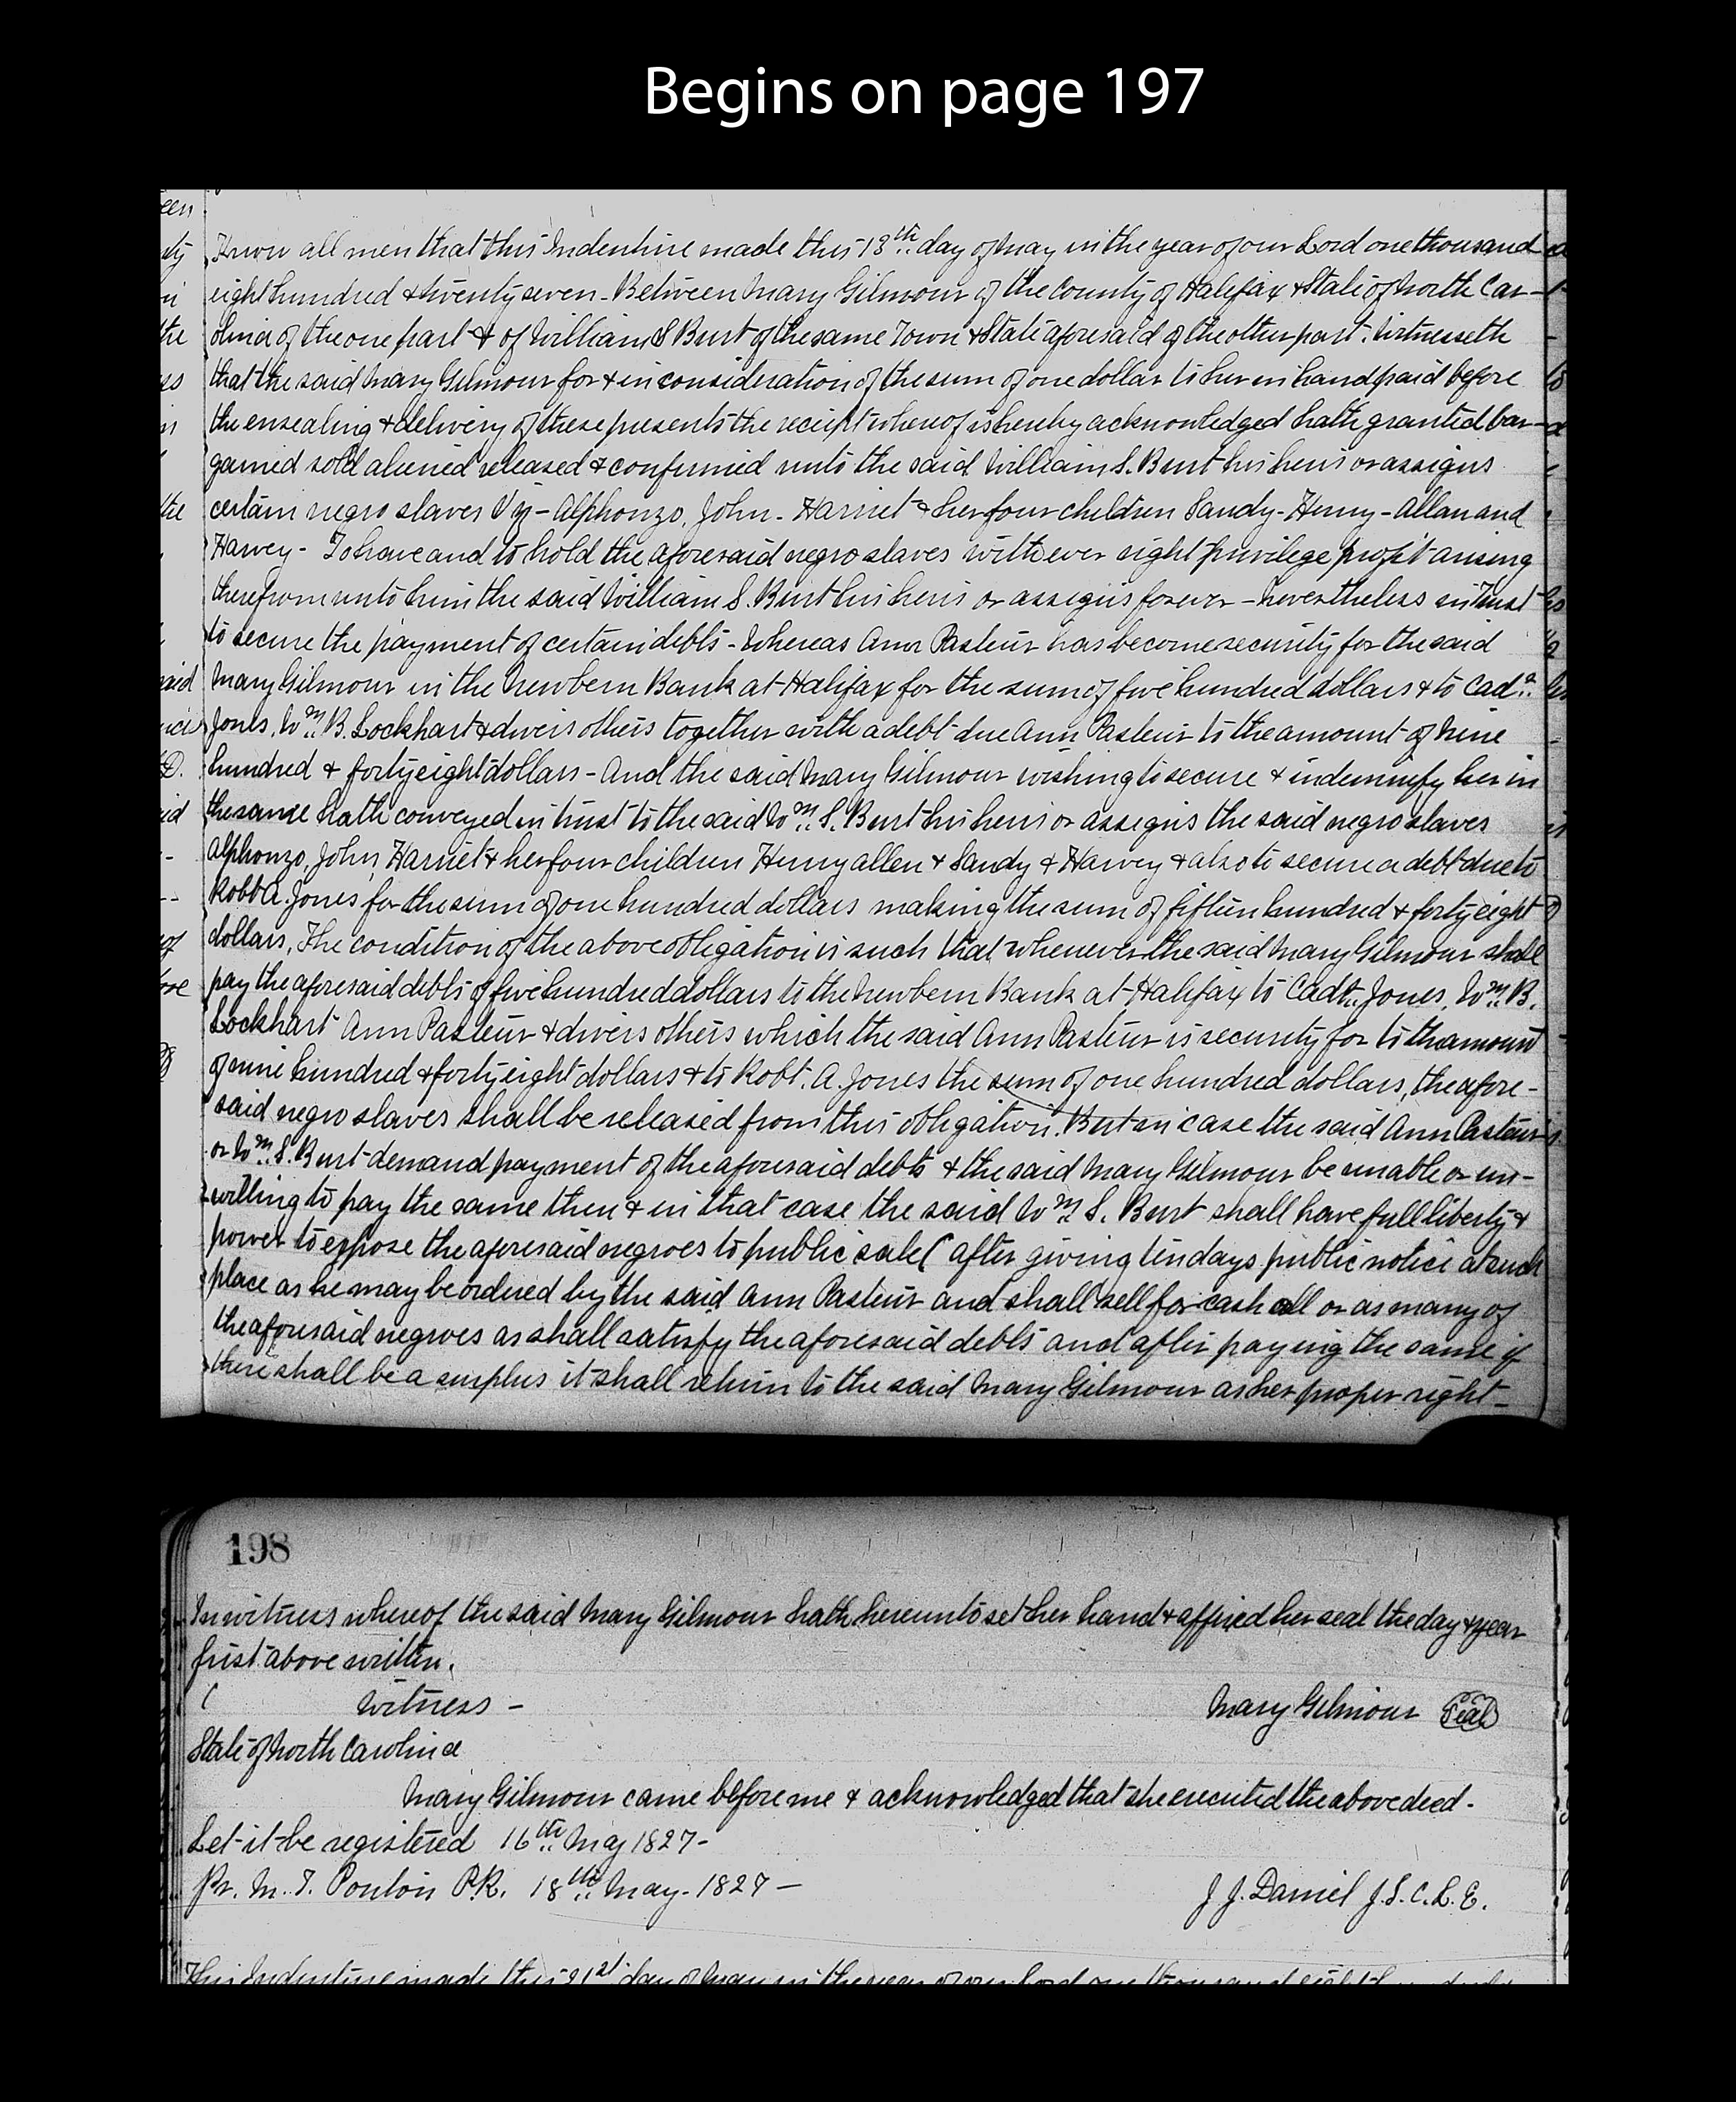 Begins on page 197
Know all men that this Indenture made this 13th day of May in the year of our Lord one thousand
eight hundred & twenty seven - Between Mary Gilmour of the County of Halifax & State of North Car-
olina of the one part & of William S Burt of the same Town & State aforesaid of the other part. Witnesseth
that the said Mary Gilmour for & in consideration of the sum of one dollar to her in hand paid before
the ensealing & delivery of these presents the receipt whereof is hereby acknowledged hath granted bar-
gained sold aliened released & confirmed unto the said William S. Burt his heirs or assigns
certain negro slaves Viz - Alphonzo, John - Harriet & her four children Sandy - Henry - Allan and
Harvey - To have and to hold the aforesaid negro slaves with ever right privilege profit arising
therefrom unto him the said William S. Burt his heirs or assigns forever - nevertheless in Trust
to secure the payment of certain debts - Whereas Ann Pasteur has become security for the said
Mary Gilmour in the Newbern Bank at Halifax for the sum of five hundred dollars & to Cad.r
Jones, Wm. B. Lockhart & divers others together with a debt due Ann Pasteur to the amount of Nine
hundred & forty eight dollars - And the said Mary Gilmour wishing to secure & indemnify her in
the same hath conveyed in trust to the said Wm. S. Burt his heirs or assigns the said negro slaves
Alphonzo, John, Harriet & her four children Henry allen & Sandy & Harvey & also to secure a debt due to
Robt A. Jones for the sum of one hundred dollars making the sum of fifteen hundred & forty eight
dollars, The condition of the above obligation is such that whenever the said Mary Gilmour shall
pay the aforesaid debts of five hundred dollars to the Newbern Bank at Halifax to Cadr. Jones, Wm. B.
Lockhart Ann Pasteur & divers others which the said Ann Pasteur is security for to th amount
of nine hundred & forty eight dollars & to Robt. A. Jones the sum of one hundred dollars, the afore-
said negro slaves shall be released from this obligation. But in case the said Ann Pasteur
or Wm. S. Burt demand payment of the aforesaid debts & the said Mary Gilmour be unable or un-
willing to pay the same then & in that case the said Wm. S. Burt shall have full liberty &
power to expose the aforesaid negroes to public sale ( after giving ten days public notice at such
place as he may be ordered by the said Ann Pasteur and shall sell for cash all or as many of
the aforesaid negroes as shall satisfy the aforesaid debts and after paying the same if
there shall be a surplus it shall return to the said Mary Gilmour as her proper right -
198
In witness whereof the said Mary Gilmour hath hereunto set her hand & affixed her seal the day & year
first above written.
Witness - Mary Gilmour Seal
State of North Carolina
Mary Gilmour came before me & acknowledged that she executed the above deed.
Let it be registered 16th May 1827 -
Pr. M. T. Ponton P.R. 18th May - 1827 - J J. Daniel J. S. C. L. E.
This Indenture made this 21st day of May in the year of our Lord one thousand eight hundred